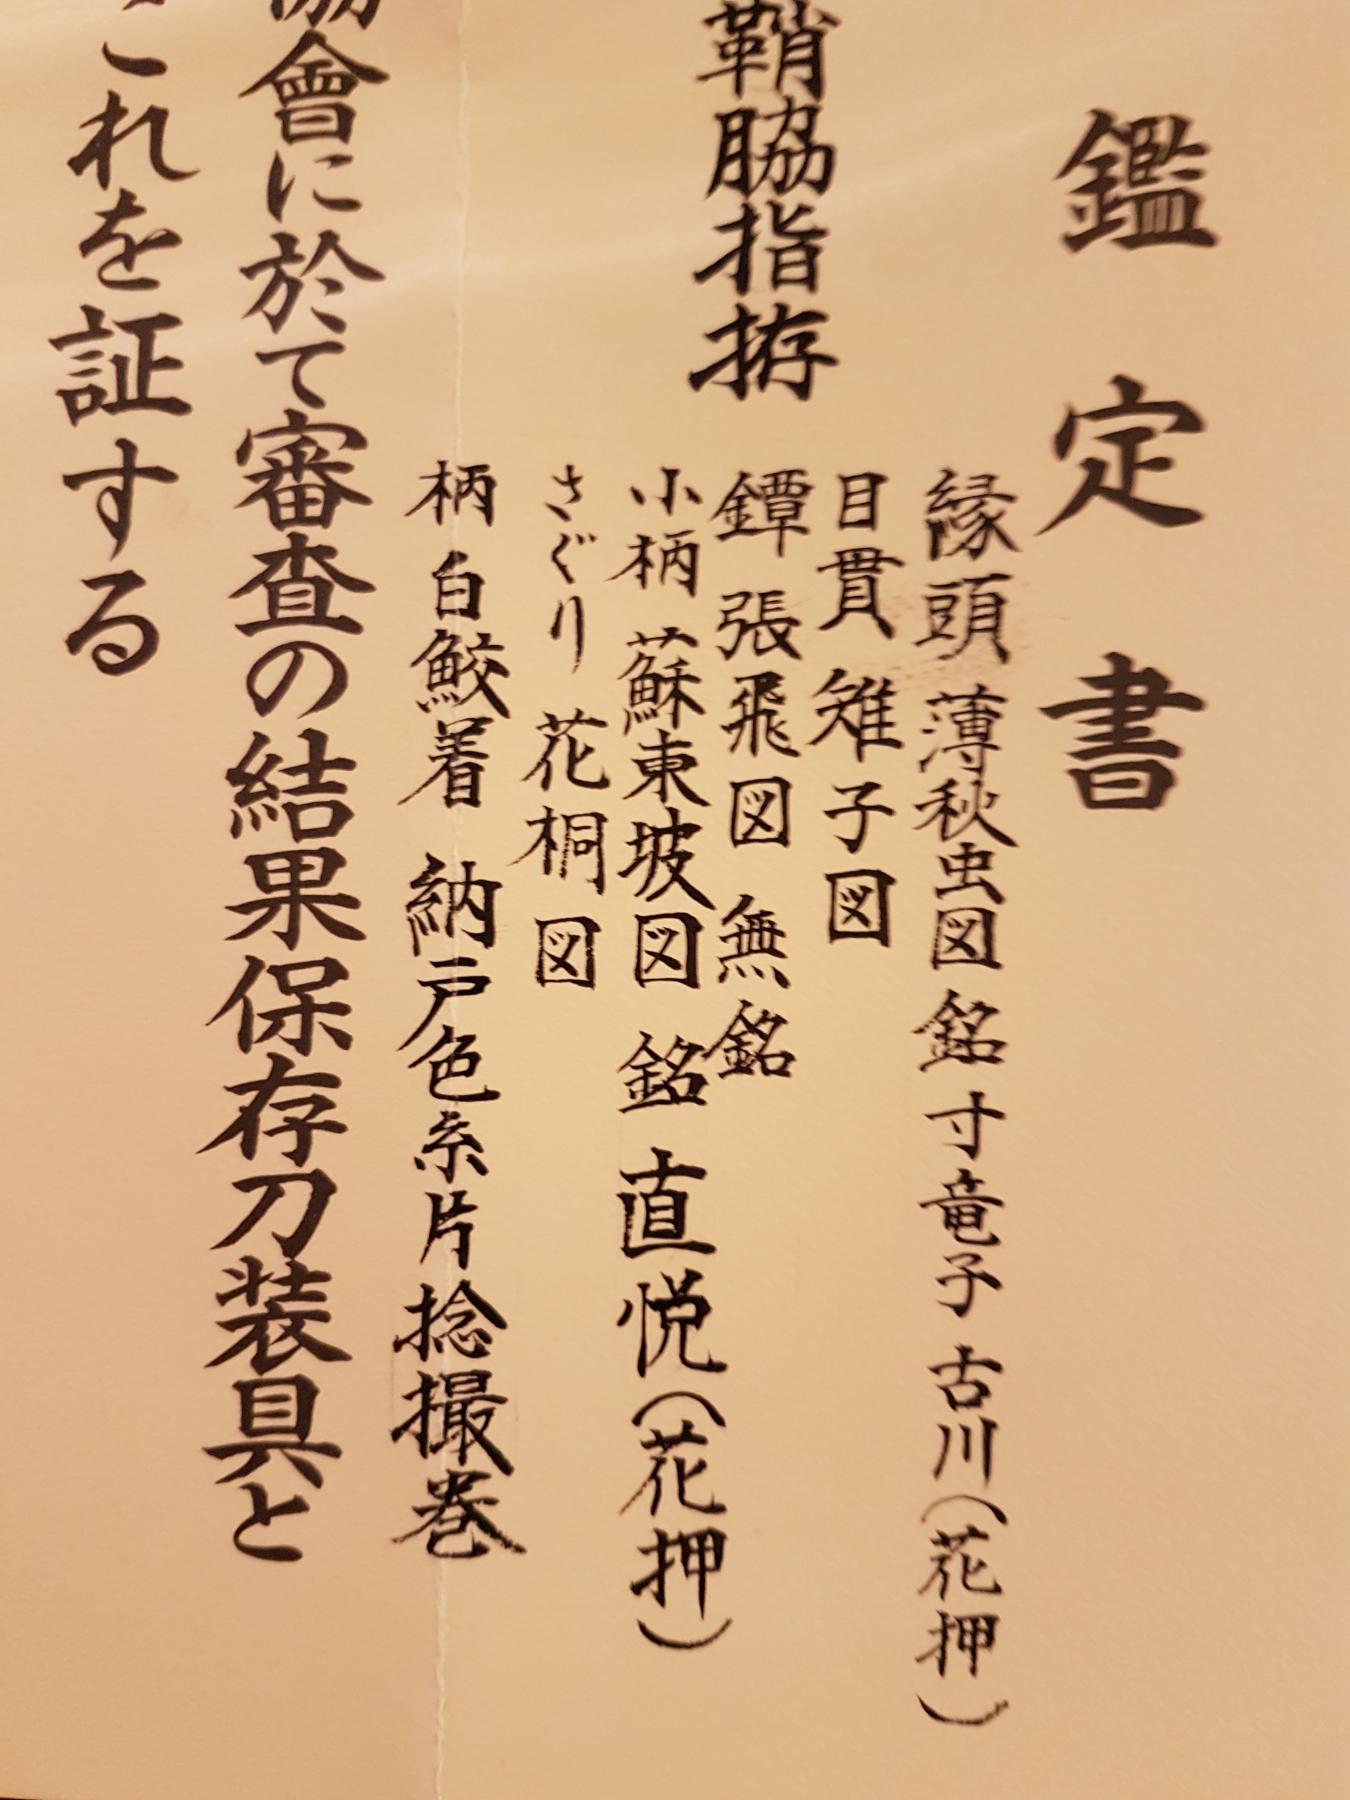 鑑定書
縁頭 薄秋虫図 銘 寸竜子 古川(花押)
目貫 雉子図
鞘脇指拵
鐔 張飛図 無銘
小柄 蘇東坡図 銘 直悦(花押)
さぐり 花桐図
柄 白鮫着 納戸色糸片捻撮巻
會に於て審査の結果保存刀装具と
これを証する